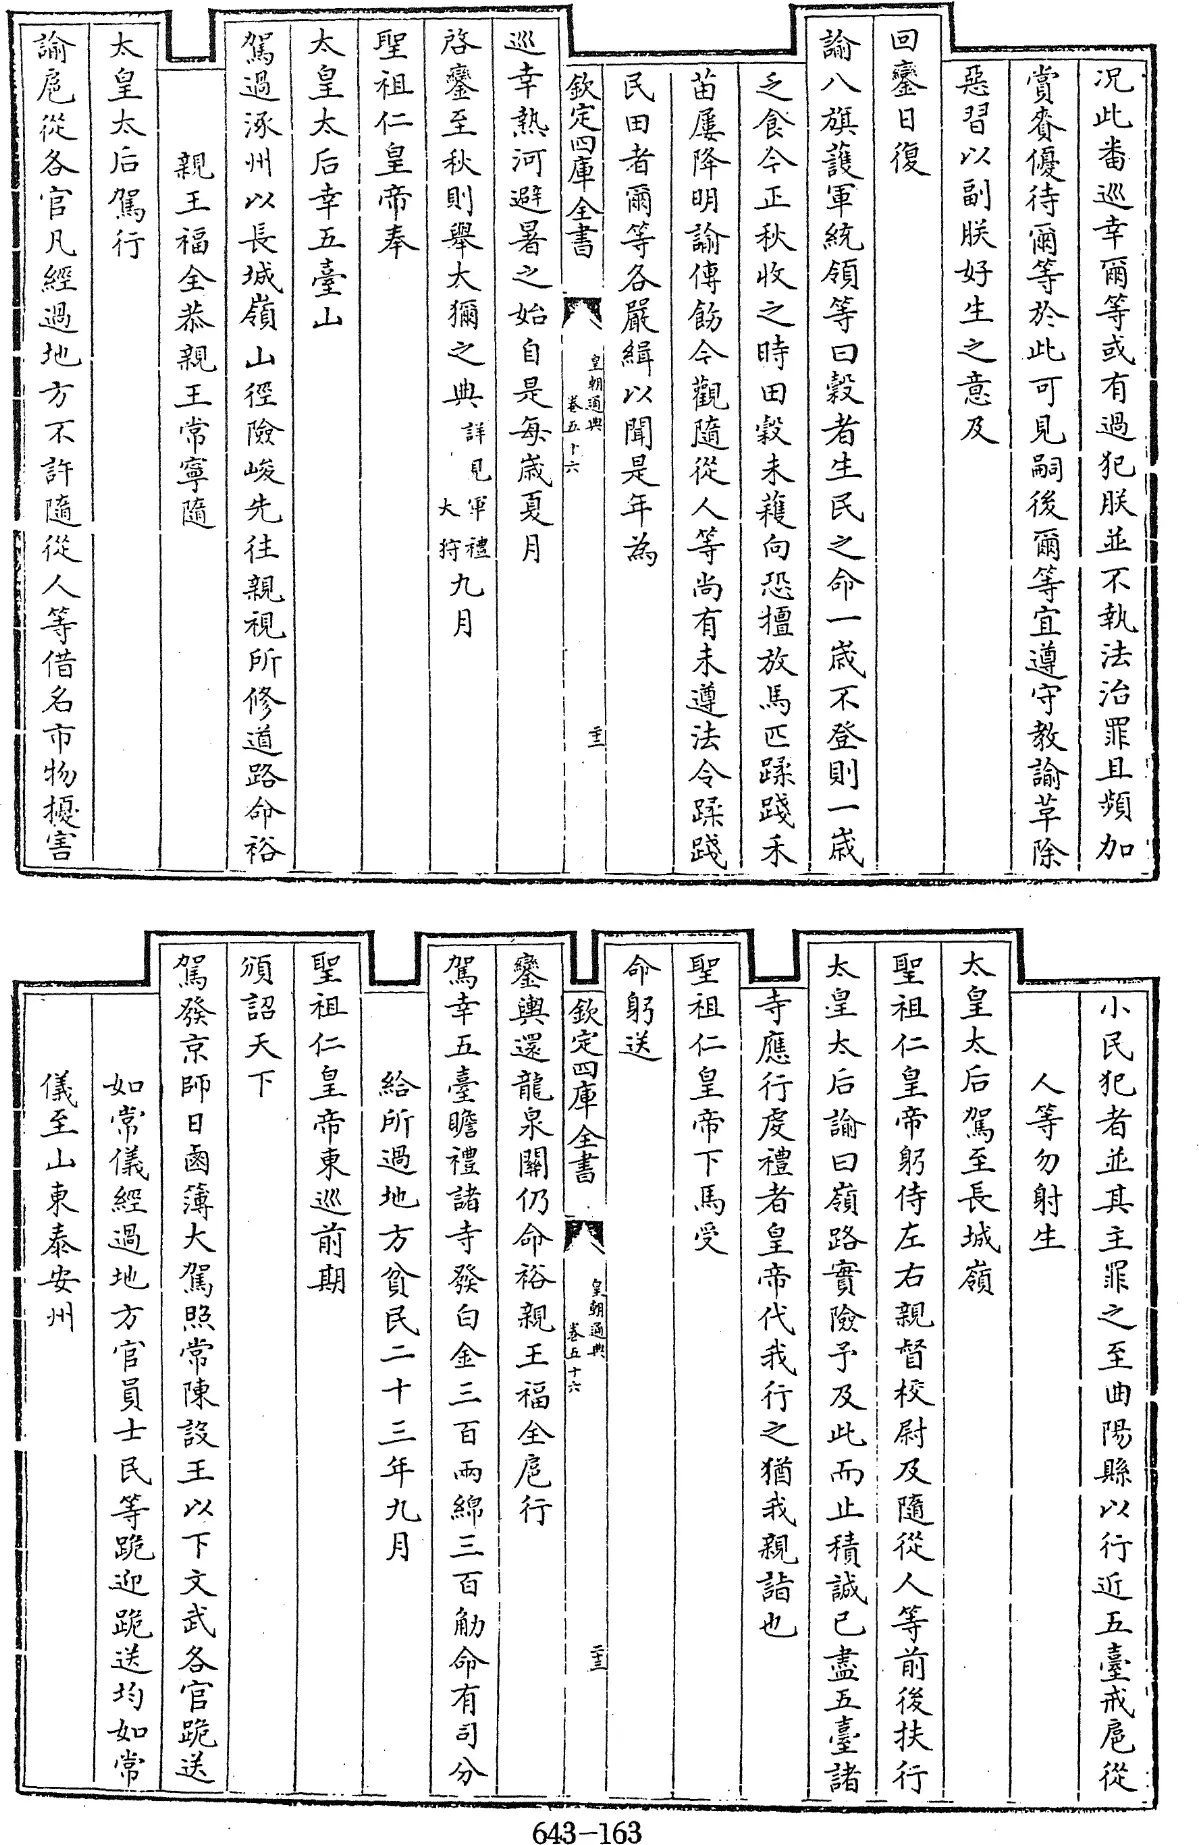 况此番巡幸爾等或有過犯朕並不執法治罪且頻加
賞賚優待爾等於此可見嗣後爾等宜遵守教諭草除
惡習以副朕好生之意及
回鑾日復
諭八旗護軍統領等曰穀者生民之命一歲不登則一歲
乏食今正秋收之時田穀未穫向恐擅放馬匹蹂踐禾
苗屢降明諭傳飭今觀隨從人等尚有未遵法令蹂踐
民田者爾等各嚴緝以聞是年為
欽定四庫全書
皇朝通典
卷五十六
二十三
巡幸熱河避暑之始自是每歲夏月
啓鑾至秋則舉大獮之典詳見軍禮大狩九月
聖祖仁皇帝奉
太皇太后幸五臺山
駕過涿州以長城嶺山徑險峻先往親視所修道路命裕
親王福全恭親王常寧隨
太皇太后駕行
諭扈從各官凡經過地方不許隨從人等借名市物擾害
小民犯者並其主罪之至曲陽縣以行近五臺戒扈從
人等勿射生
太皇太后駕至長城嶺
聖祖仁皇帝躬侍左右親督校尉及隨從人等前後扶行
太皇太后諭曰嶺路實險予及此而止積誠已盡五臺諸
寺應行虔禮者皇帝代我行之猶我親詣也
聖祖仁皇帝下馬受
命躬送
欽定四庫全書
皇朝通典
卷五十六
二十三
鑾輿還龍泉關仍命裕親王福全扈行
駕幸五臺瞻禮諸寺發白金三百兩綿三百觔命有司分
給所過地方貧民二十三年九月
聖祖仁皇帝東巡前期
頒詔天下
駕發京師日鹵簿大駕照常陳設王以下文武各官跪送
如常儀經過地方官員士民等跪迎跪送均如常
儀至山東泰安州
643-163